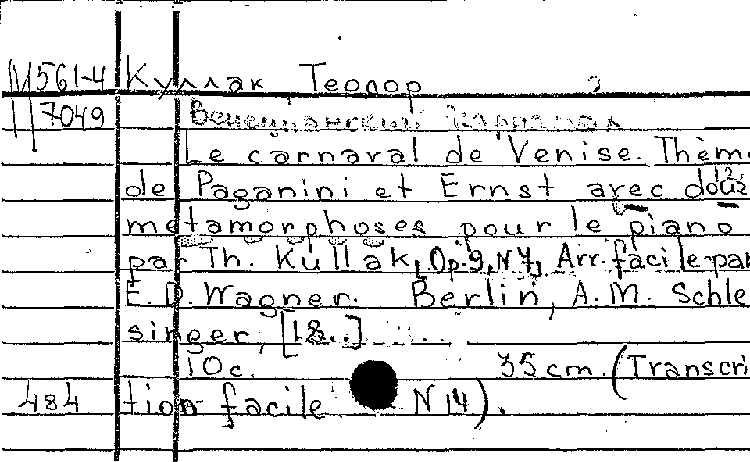 М561-4 Куллак Теодор
Н7049 Венецианский карнавал
Le carnaval de Venise. Thèm.
de Paganini et Ernst avec douz 12.
metamorphoses pour le piano
par Th. Kullak, Op.9, N4, Arr. facile par
E. D. Wagner. Berlin, A. M. Schle
singer, [18..]
10 c. 35 cm. (Transcri
484 tion facile N 14).